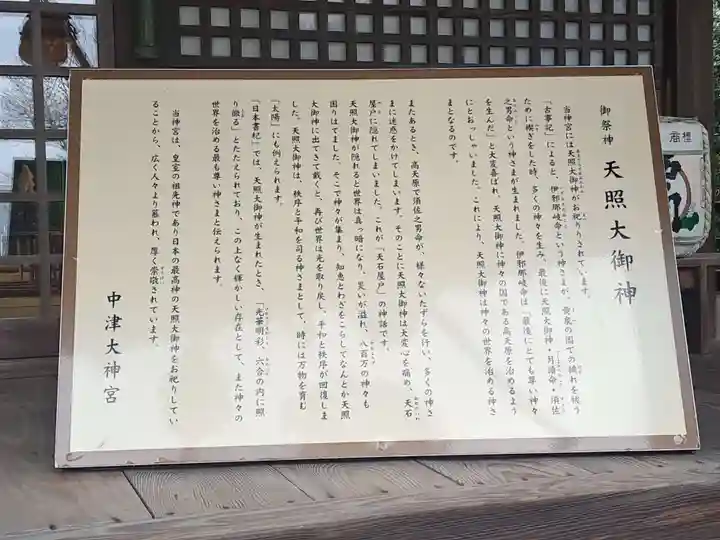 御祭神 天照大御神
当神宮には天照大御神がお祀りされています。
「古事記」によると、伊邪那岐命という神さまが、黄泉の国での穢れを祓う
ために禊ぎをした時、多くの神々を生み、最後に天照大御神・月讀命・須佐
之男命という神さまが生まれました。伊邪那岐命は「最後にとても尊い神々
を生んだ」と大変喜ばれ、天照大御神に神々の国である高天原を治めるよう
にとおっしゃいました。これにより、天照大御神は神々の世界を治める神さ
まとなるのです。
またあるとき、高天原で須佐之男命が、様々ないたずらを行い、多くの神さ
まに迷惑をかけてしまいます。そのことに天照大御神は大変心を痛め、天石
屋戸に隠れてしまいました。これが「天石屋戸」の神話です。
天照大御神が隠れると世界は真っ暗になり、災いが溢れ、八百万の神々も
困りはてました。そこで神々が集まり、知恵とわざをこらしてなんとか天照
大御神に出てきて戴くと、再び世界は光を取り戻し、平和と秩序が回復しま
した。天照大御神は、秩序と平和を司る神さまとして、時には万物を育む
「太陽」にも例えられます。
「日本書紀」では、天照大御神が生まれたとき、「光華明彩、六合の内に照
り徹る」とたたえられており、この上なく輝かしい存在として、また神々の
世界を治める最も尊い神さまと伝えられます。
当神宮は、皇室の祖先神であり日本の最高神の天照大御神をお祀りしてい
ることから、広く人々より慕われ、厚く崇敬されています。
中津大神宮
商標